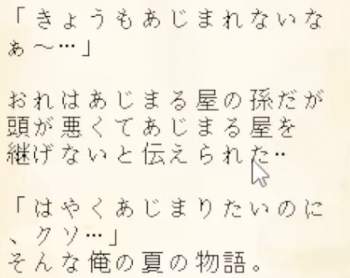 「きょうもあじまれないな
ぁ～…」
おれはあじまる屋の孫だが
頭が悪くてあじまる屋を
継げないと伝えられた‥
「はやくあじまりたいのに
、クソ…」
そんな俺の夏の物語。